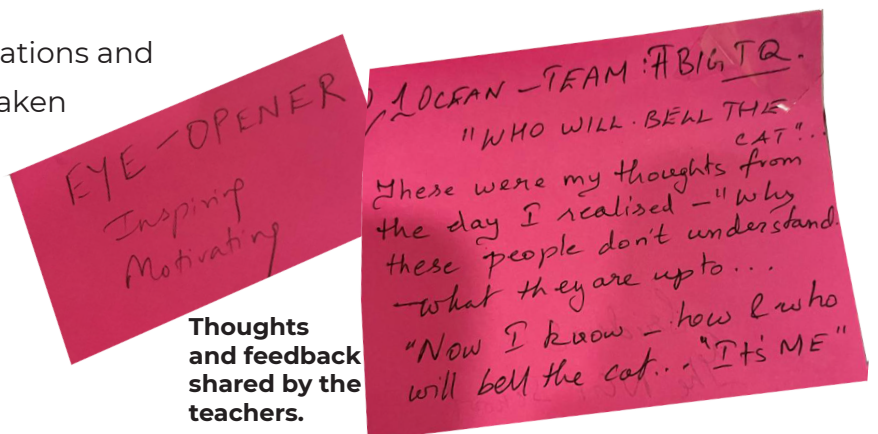 ations and
aken
EYE-OPENER
Inspiring
Motivating
Thoughts
and feedback
shared by the
teachers.
1 OCEAN - TEAM : A BIG TQ.
"WHO WILL BELL THE
CAT"..
These were my thoughts from
the day I realised - "why
these people don't understand
what they are up to...
"Now I know - how & who
will bell the cat... "It's ME"